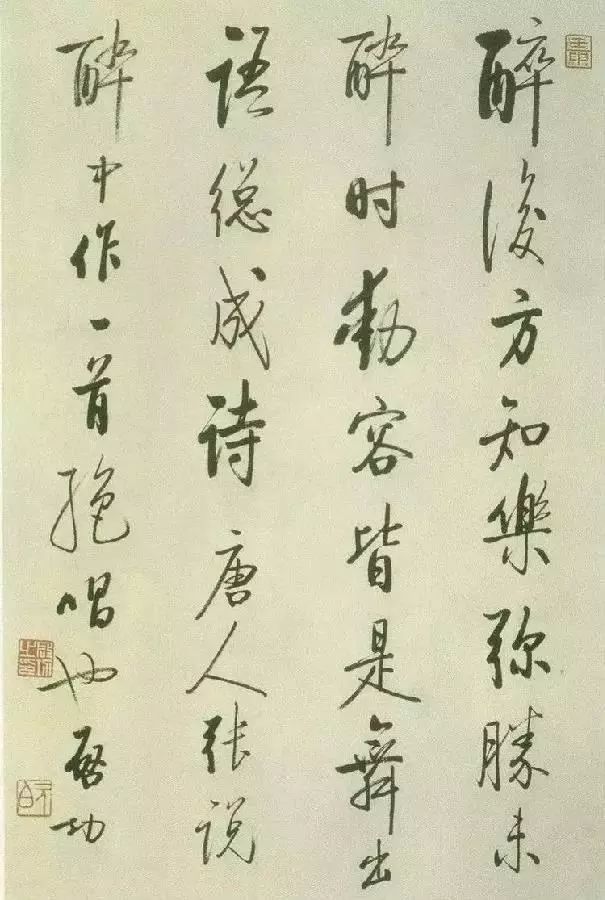 醉後方知樂弥勝未
醉时動容皆是舞出
语總成诗唐人张说
醉中作一首绝唱也啓功